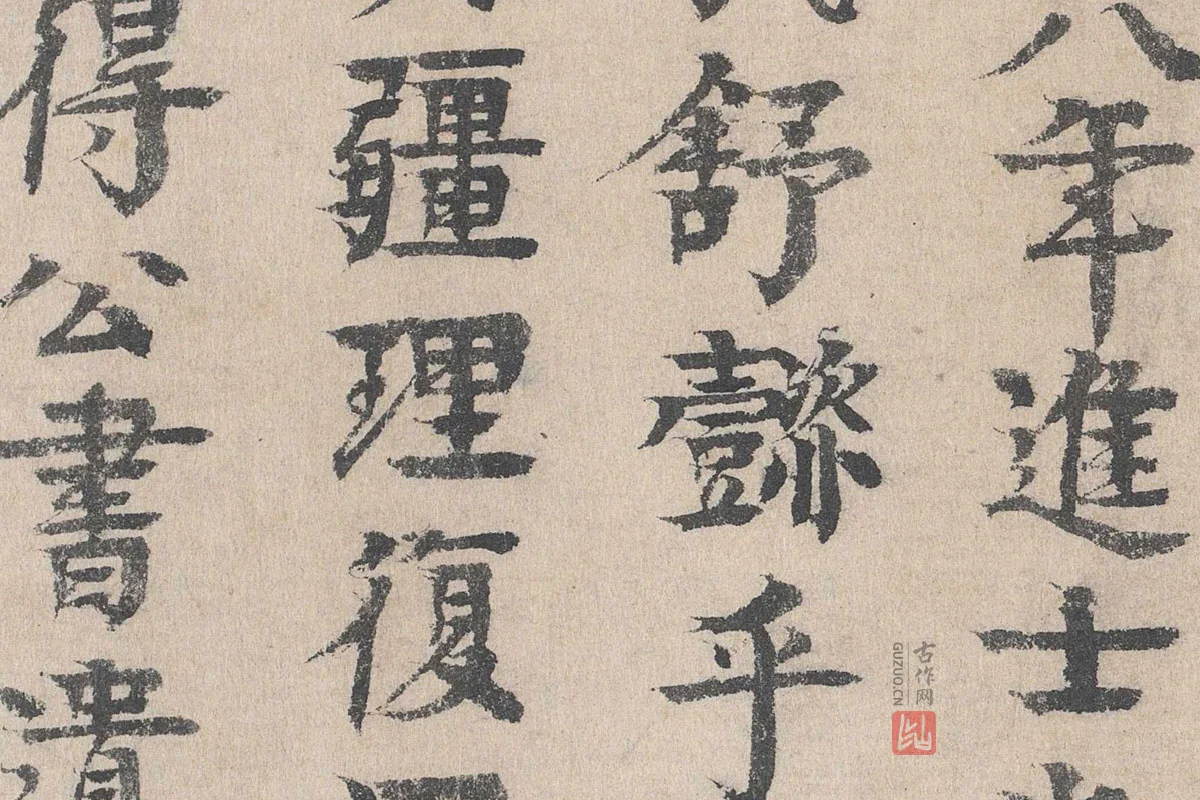 八年進士
舒懿乎
疆理復
得公書遺
古作网
GUZUO.CN